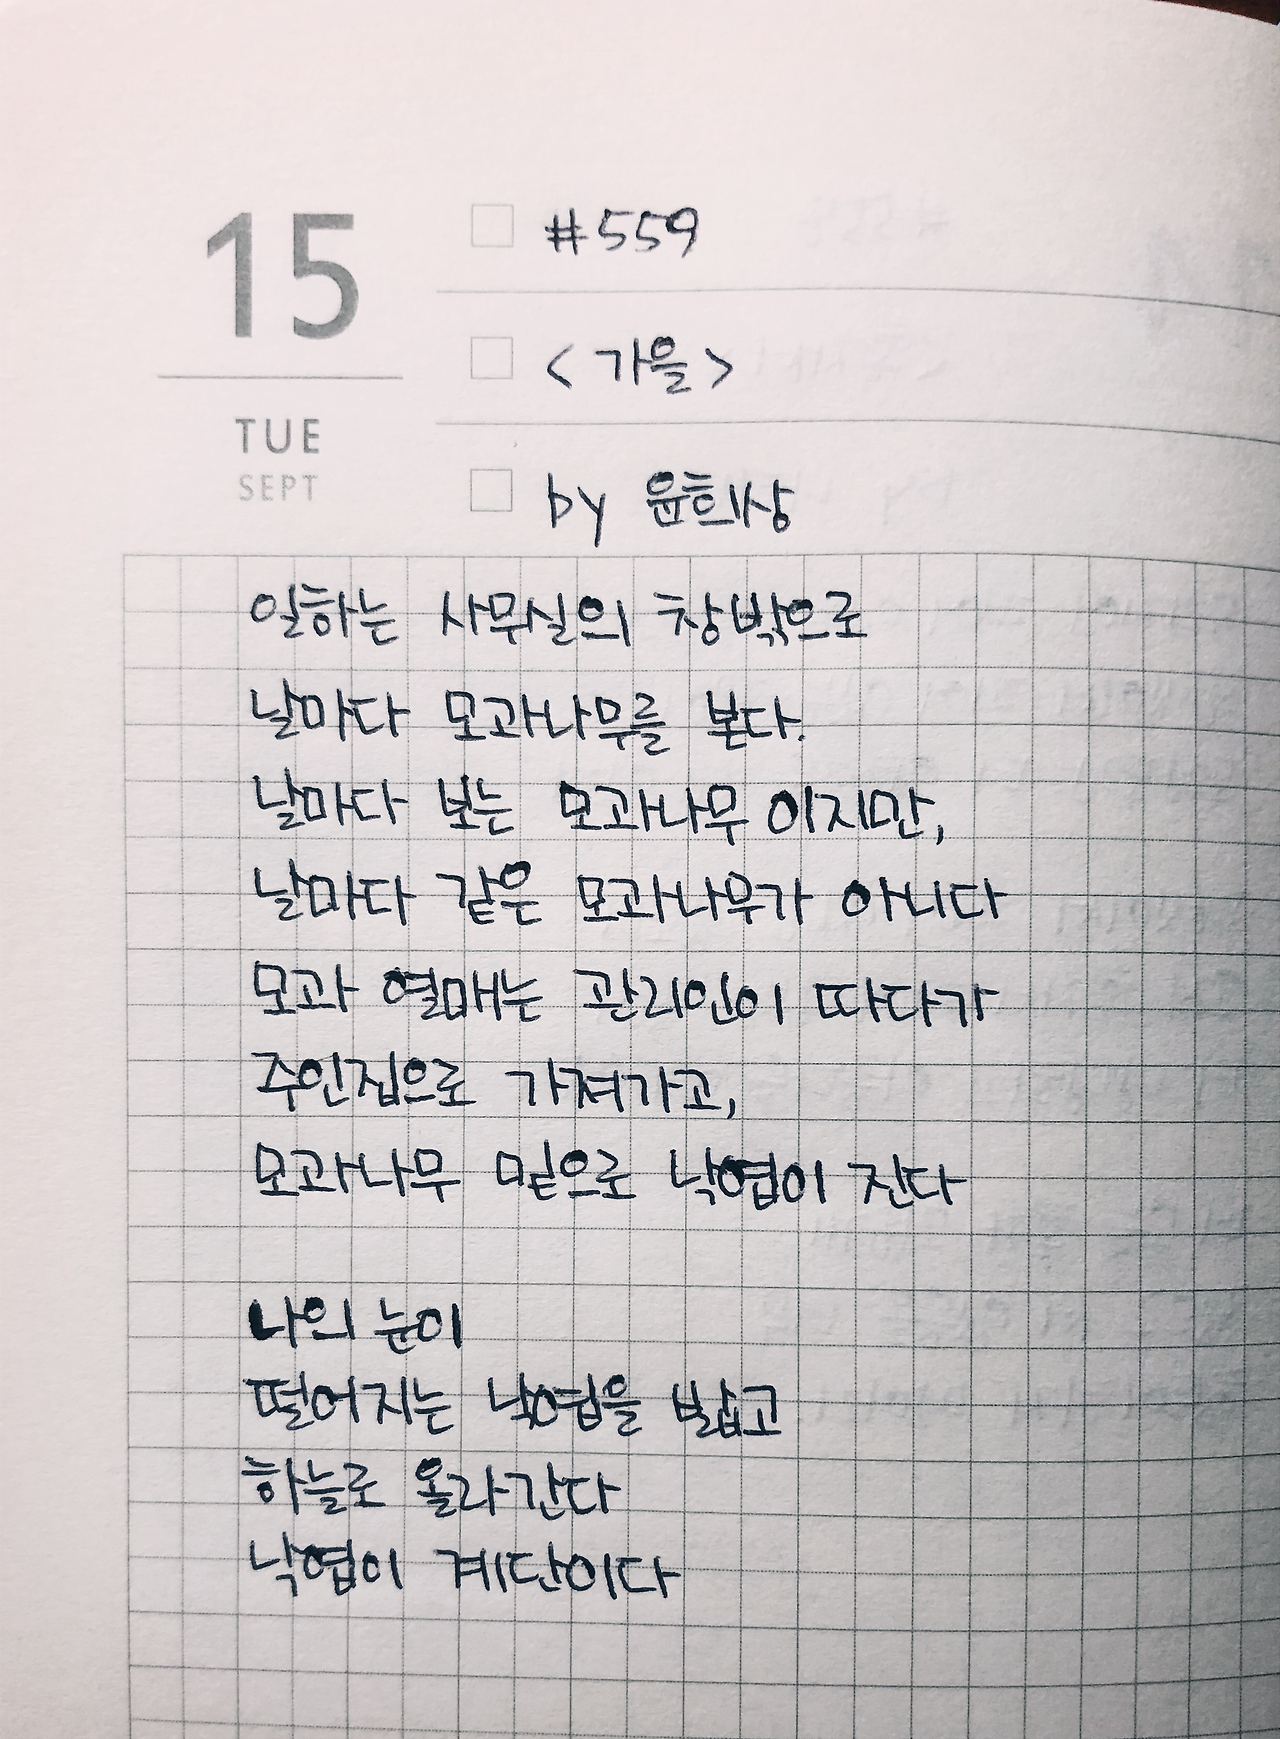 15
TUE
SEPT
#559
<가을>
by 윤희상
일하는 사무실의 창밖으로
날마다 모과나무를 본다.
날마다 보는 모과나무 이지만,
날마다 같은 모과나무가 아니다
모과 열매는 관리인이 따다가
주인집으로 가져가고,
모과나무 밑으로 낙엽이 진다
나의 눈이
떨어지는 낙엽을 밟고
하늘로 올라간다
낙엽이 계단이다